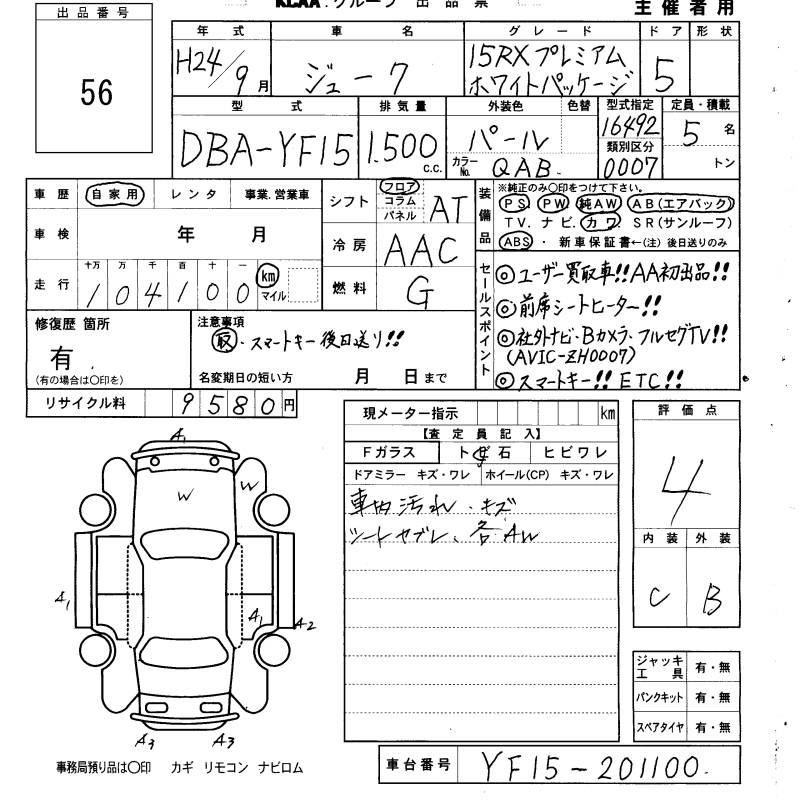 KCAA.グループ 出品票
主催者用
出品番号
56
年式 車名 グレード ドア 形状
H24/9月 ジューク 15RXプレミアム
ホワイトパッケージ 5
型式 排気量 外装色 色替 型式指定 定員・積載
DBA-YF15 1.500c.c. パール 16492 5名
カラーNo. QAB 類別区分 0007 トン
車歴 自家用 レンタ 事業.営業車
シフト フロア コラム パネル AT
装備品 ※純正のみ○印をつけて下さい。
PS PW 純AW AB(エアバック)
TV. ナビ. カワ SR(サンルーフ)
ABS ・ 新車保証書←(注) 後日送りのみ
車検 年 月
冷房 AAC
走行 十万 万 千 百 十 一
104100 km マイル
燃料 G
セールスポイント
◎ユーザー買取車!!AA初出品!!
◎前席シートヒーター!!
◎社外ナビ・Bカメラ、フルセグTV!!
(AVIC-ZH0007)
◎スマートキー!! ETC!!
修復歴 箇所
有
(有の場合は○印を)
注意事項
取.スマートキー後日送り!!
名変期日の短い方 月 日まで
リサイクル料 9580円
現メーター指示 km
【査定員記入】
Fガラス トビ石 ヒビワレ
ドアミラー キズ・ワレ ホイール(CP) キズ・ワレ
車内汚れ・キズ
シートヤブレ、各AW
評価点
4
内装 外装
C B
A1
W W
A1 A1 A2
A3 A3
ジャッキ工具 有・無
パンクキット 有・無
スペアタイヤ 有・無
事務局預り品は○印 カギ リモコン ナビロム
車台番号 YF15-201100.